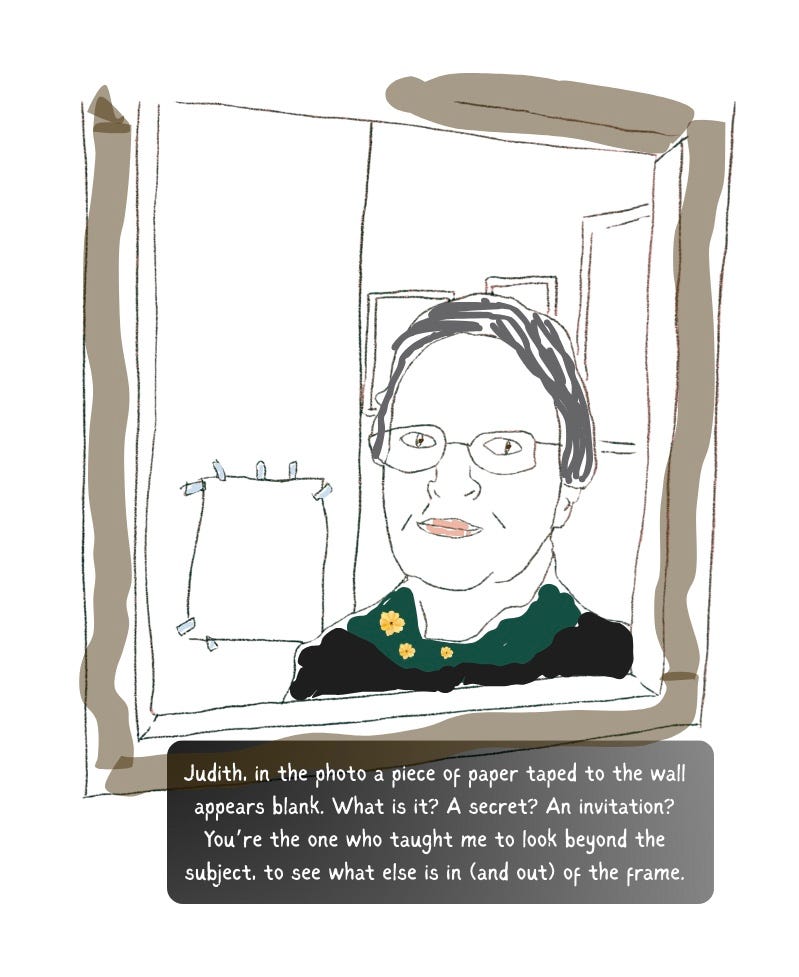 Judith, in the photo a piece of paper taped to the wall
appears blank. What is it? A secret? An invitation?
You're the one who taught me to look beyond the
subject, to see what else is in (and out) of the frame.